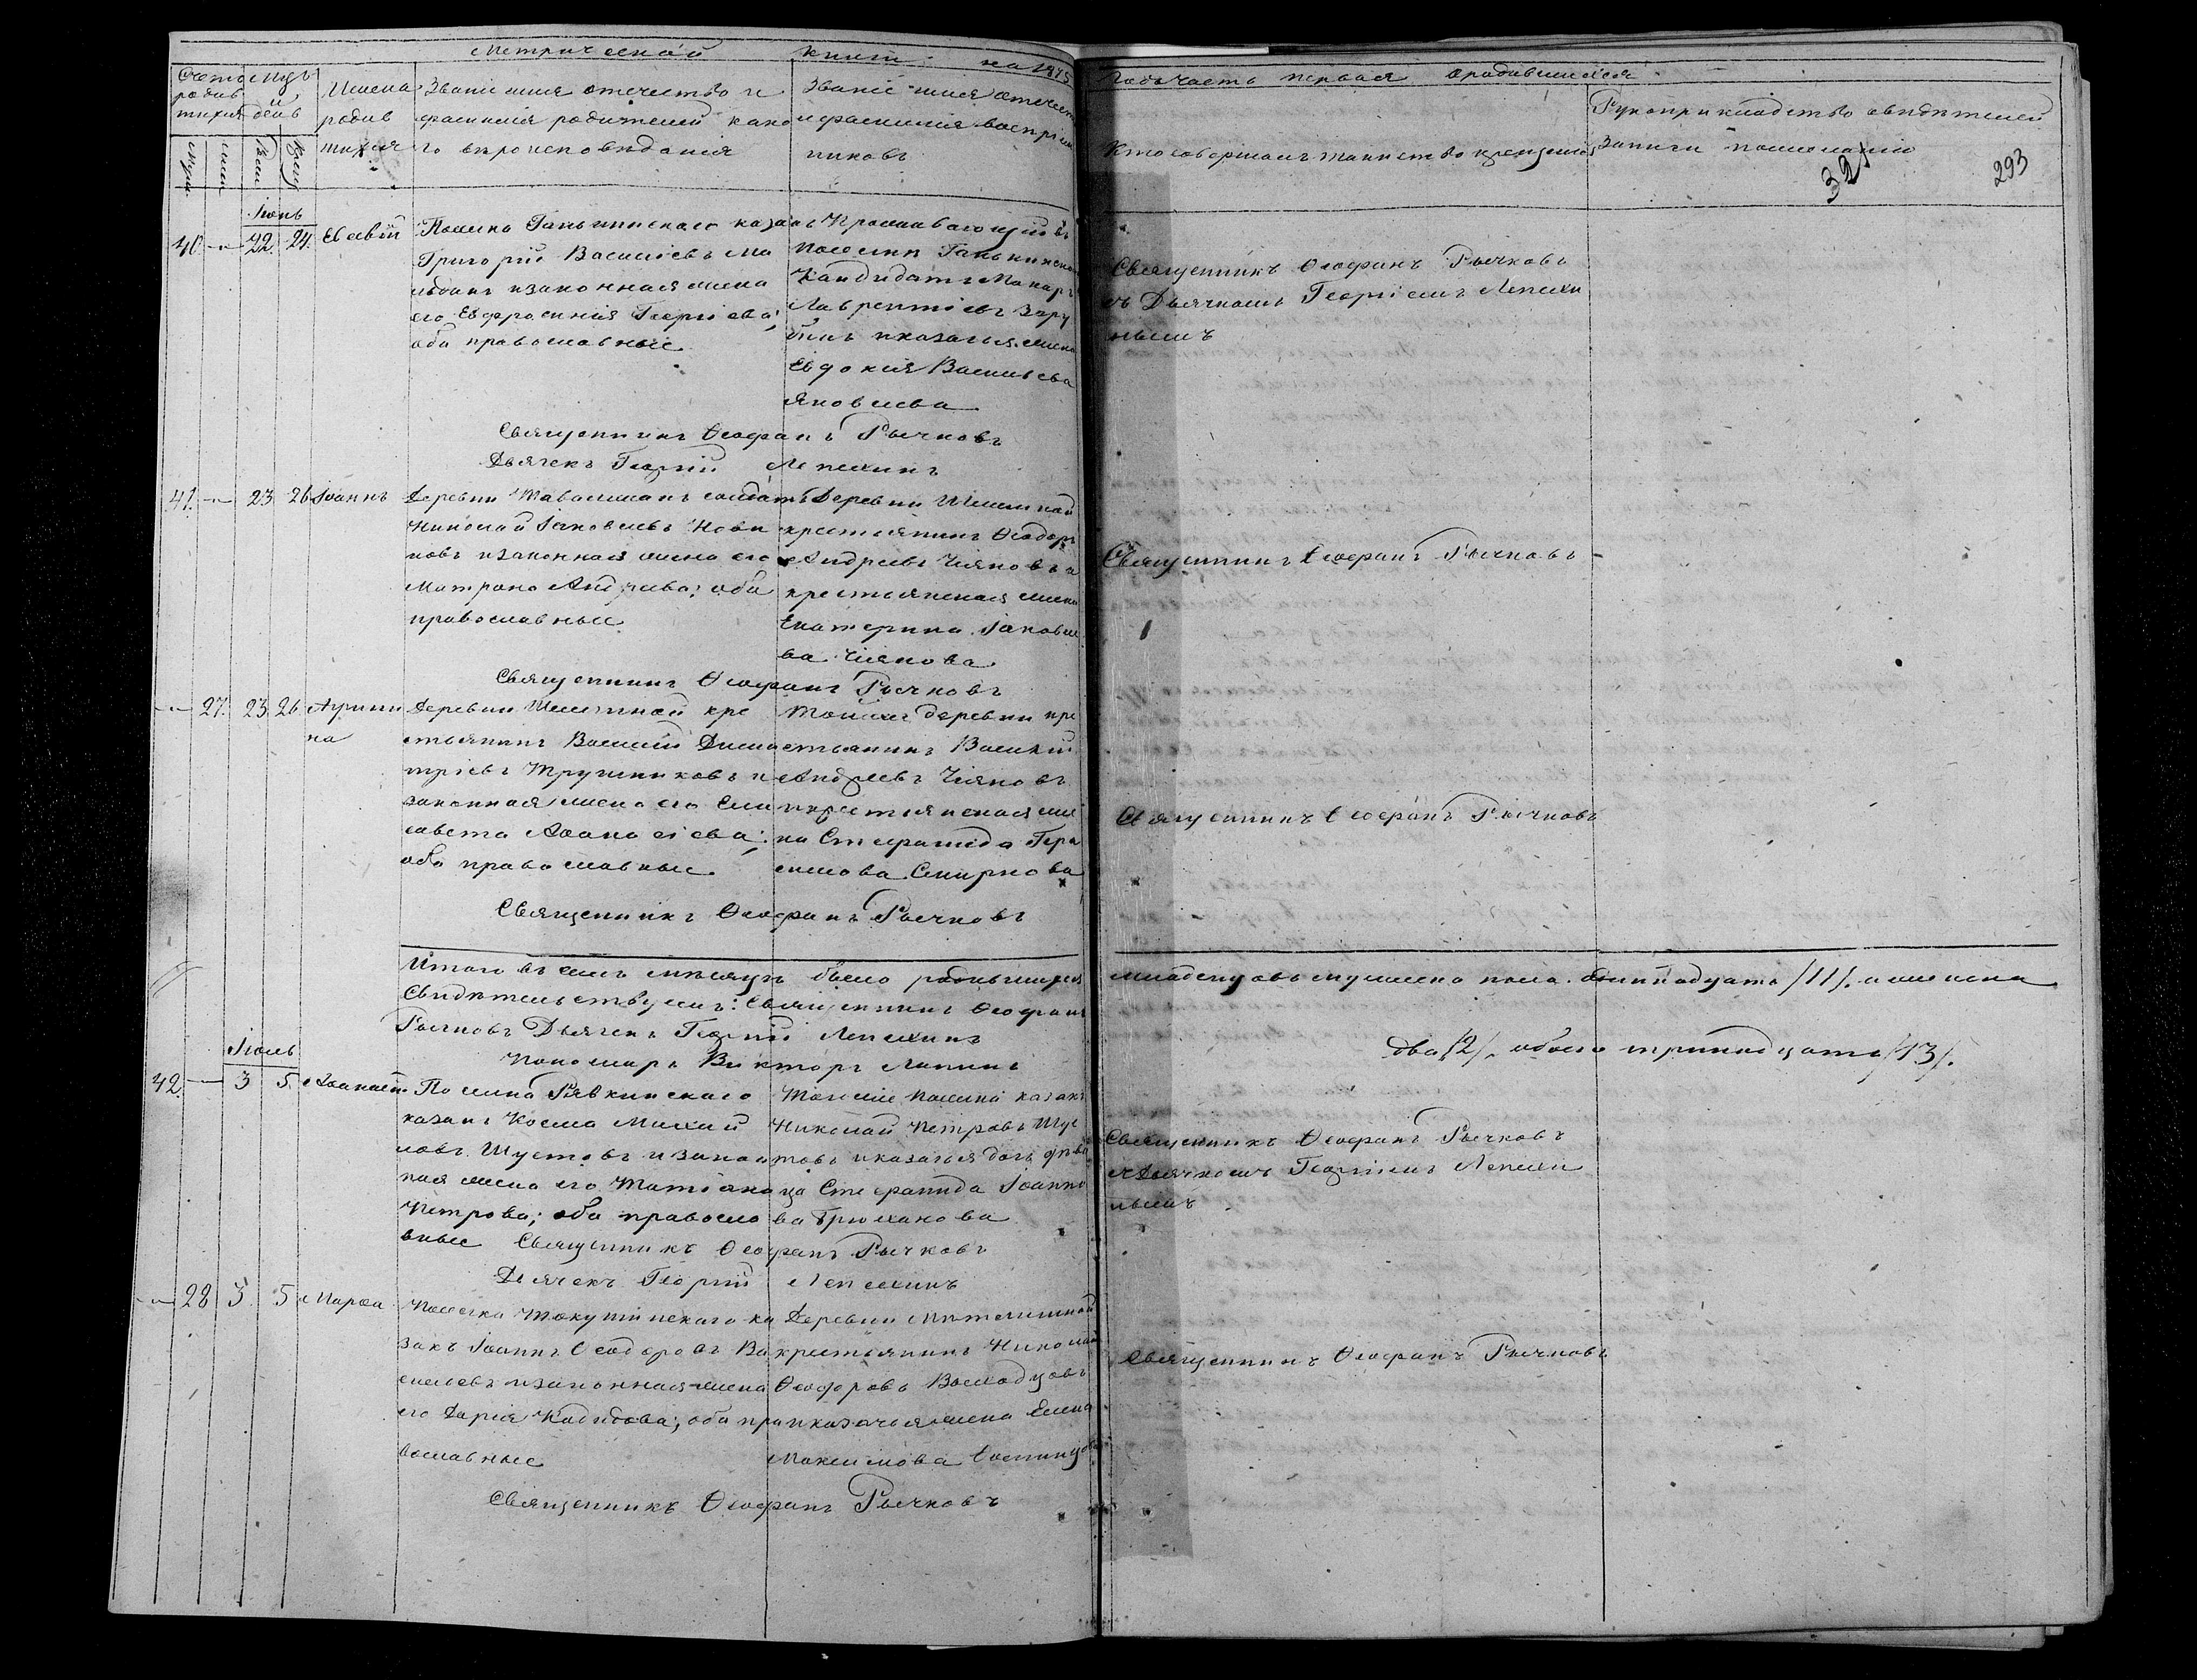 Метрической книги на 1875
Счетъ родив
шихся
Мѣсяцъ
и день
муж.
жен.
Имена
родив
шихся
Званіе имя отечество и
фамилія родителей како
го вѣроисповѣданія
Званіе имя отечест
и фамилія воспріем
никовъ
Годъ часть первая о родившихся
Кто совершалъ таинство крещенія
Рукоприкладство свидѣтелей
записи по желанію
321
293
Іюнь
40. 22. 24. Евсевій
Поселка Ганькинскаго казакъ
Григорій Васильевъ
и законная жена
его Евфросинія Георгіева;
оба православные.
Проживающій въ
поселкѣ Ганькинско
Кандидатъ Макаръ
Лаврентіевъ Зару
бинъ и казачья жена
Евдокія Васильева
Яковлева
Священникъ Ѳеофанъ Рычковъ
съ Дьячкомъ Георгіемъ Лепехи
нымъ
Священникъ Ѳеофанъ Рычковъ
Дьячекъ Георгій Лепехинъ
41. 23. 26 Іоаннъ
Деревни солдатъ
Николай Іаковлевъ Нови
ковъ и законная жена его
Матрона Андреева; оба
православные.
Деревни
крестьянинъ Ѳеодоръ
Андреевъ Чияновъ и
крестьянская жена
Екатерина Іаковле
ва Чиянова
Священникъ Ѳеофанъ Рычковъ
Священникъ Ѳеофанъ Рычковъ
27. 23. 26 Агрипи
на
Деревни кре
стьянинъ Василій Дими
тріевъ Трушниковъ и
законная жена его Ели
савета Аѳанасіева;
оба православные.
Той же деревни кре
стьянинъ Василій
Андреевъ Чияновъ
и крестьянская же
на Стефанида Гера
симова Смирнова
Священникъ Ѳеофанъ Рычковъ
Священникъ Ѳеофанъ Рычковъ
Итого въ семъ мѣсяцѣ было родившихся младенцовъ мужеска пола одиннадцать /11/. и женска
два /2/. обоего тринадцать /13/.
Свидѣтельствуемъ: Священникъ Ѳеофанъ
Рычковъ Дьячекъ Георгій Лепехинъ
Пономарь Викторъ Лапинъ
Іюль
42. 3 5. Аѳанасій
Поселка Рявкинскаго
казакъ Косма Михай
ловъ Шустовъ и закон
ная жена его Татіана
Петрова; оба правосла
вные
Того же поселка казакъ
Николай Петровъ Шус
товъ и казачья дочь дѣви
ца Стефанида Іоанно
ва Брюханова
Священникъ Ѳеофанъ Рычковъ
съ Дьячкомъ Георгіемъ Лепехи
нымъ
Священникъ Ѳеофанъ Рычковъ
Дьячекъ Георгій Лепехинъ
28 3. 5. Марѳа
Поселка Токушинскаго ка
закъ Іоаннъ Ѳеодоровъ Ва
сильевъ и законная жена
его Дарія; оба пра
вославные
Деревни
крестьянинъ Николай
Ѳеодоровъ
и казачья жена Елена
Максимова
Священникъ Ѳеофанъ Рычковъ
Священникъ Ѳеофанъ Рычковъ